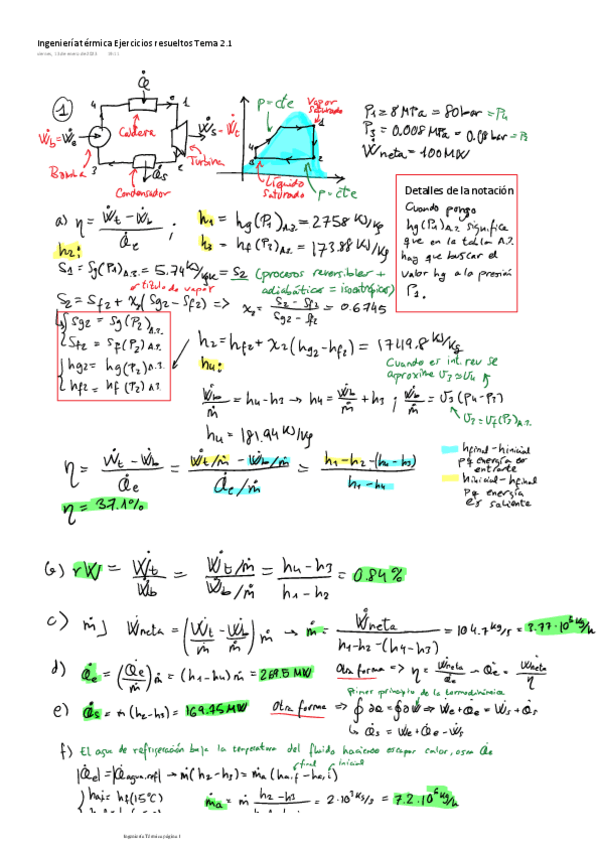 Ingeniería térmica Ejercicios resueltos Tema 2.1
① Q̇e
4 1
Caldera
Ẇb = Ẇe
Ẇs = Ẇt
Bomba
3 2
Turbina
Q̇s
Condensador
p=cte
Vapor saturado
Líquido saturado
p=cte
P1 = 8 MPa = 80 bar = P4
P3 = 0.008 MPa = 0.08 bar = P2
Ẇneta = 100 MW
Detalles de la notación
Cuando pongo
hg(P1)A.2. significa
que en la tabla A.2.
hay que buscar el
valor hg a la presión
P1.
a) η = (Ẇt − Ẇb) / Q̇e ;
h1 = hg(P1)A.2. = 2758 KJ/Kg
h3 = hf(P3)A.2. = 173.88 KJ/Kg
h2:
S1 = Sg(P1)A.2. = 5.74 KJ/KgK = S2 (procesos reversibles +
adiabáticos = isoentrópicos)
título de vapor
S2 = Sf2 + x2(Sg2 − Sf2) => x2 = (S2 − Sf2) / (Sg2 − Sf2) = 0.6745
Sg2 = Sg(P2)A.2.
Sf2 = Sf(P2)A.2.
hg2 = hg(P2)A.2.
hf2 = hf(P2)A.2.
h2 = hf2 + x2(hg2 − hf2) = 1749.8 KJ/Kg
h4:
Cuando es int. rev se
aproxima v3 ≈ v4
Ẇb/ṁ = h4 − h3 → h4 = Ẇb/ṁ + h3 ; Ẇb/ṁ = v3(P4 − P3)
v3 = vf(P3)A.2.
h4 = 181.94 KJ/Kg
η = (Ẇt − Ẇb) / Q̇e = (Ẇt/ṁ − Ẇb/ṁ) / (Q̇e/ṁ) = (h1 − h2 − (h4 − h3)) / (h1 − h4)
hfinal − hinicial
pq energía es
entrante
hinicial − hfinal
pq energía
es saliente
η = 37.1%
b) rW = Ẇt / Ẇb = (Ẇt/ṁ) / (Ẇb/ṁ) = (h4 − h3) / (h1 − h2) = 0.84%
c) ṁ) Ẇneta = (Ẇt/ṁ − Ẇb/ṁ) ṁ → ṁ = Ẇneta / (h1 − h2 − (h4 − h3)) = 104.7 Kg/s = 3.77·10⁵ Kg/h
d) Q̇e = (Q̇e/ṁ) ṁ = (h1 − h4) ṁ = 269.5 MW Otra forma => η = Ẇneta / Q̇e → Q̇e = Ẇneta / η
Primer principio de la termodinámica
e) Q̇s = ṁ (h2 − h3) = 169.75 MW Otra forma => ∮∂Q = ∮∂W => We + Qe = Ws + Qs
↳ Q̇s = Ẇe + Q̇e − Ẇs
f) El agua de refrigeración baja la temperatura del fluido haciendo escapar calor, osea Q̇s
final inicial
|Q̇s| = |Q̇agua.ref| → ṁ(h2 − h3) = ṁa (ha,f − ha,i)
ha,i = hf(15ºC)
ṁa = ṁ (h2 − h3) = 2·10³ Kg/s = 7.2·10⁶ Kg/h
Ingeniería Térmica página 1